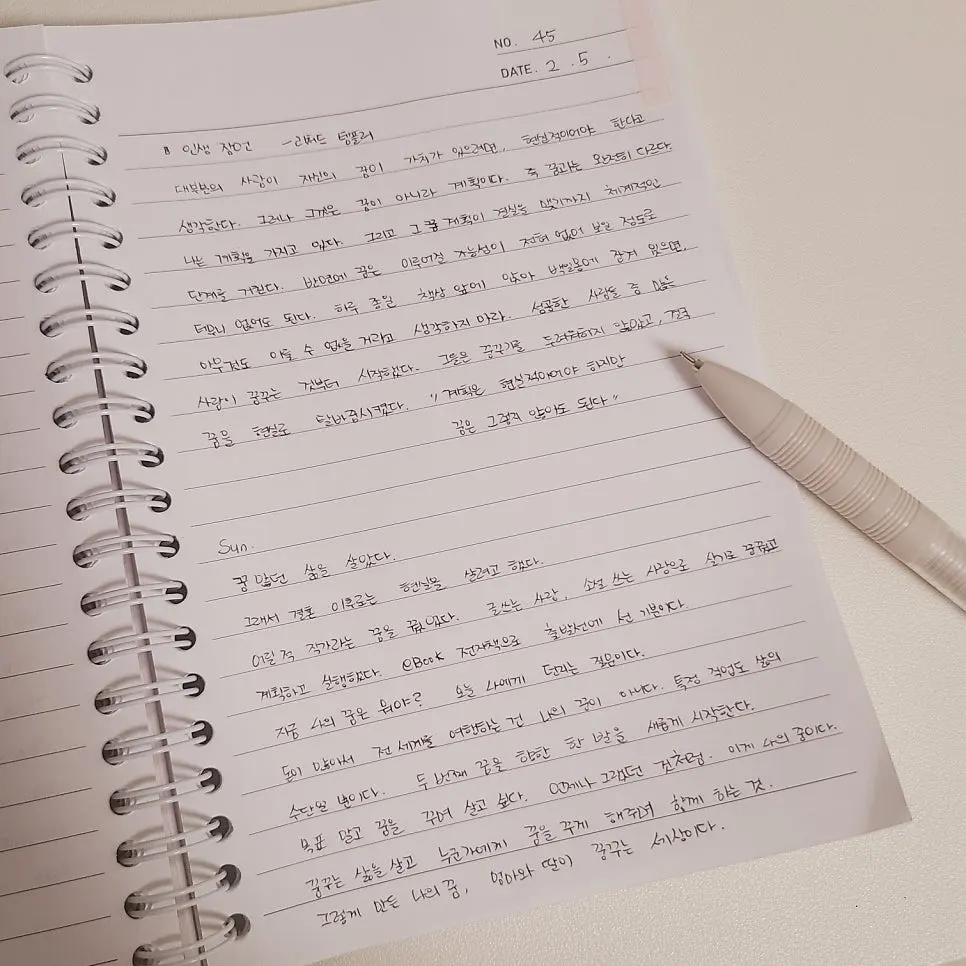 NO. 45
DATE. 2. 5.
인생 잠언 - 리처드 템플러
대부분의 사람이 자신의 꿈이 가치가 있으려면, 현실적이어야 한다고
생각한다. 그러나 그것은 꿈이 아니라 계획이다. 즉 꿈과는 완전히 다르다.
나는 계획을 가지고 있다. 그리고 그 계획이 결실을 맺기까지 체계적인
단계를 거친다. 반면에 꿈은 이루어질 가능성이 전혀 없어 보일 정도로
터무니 없어도 된다. 하루 종일 책상 앞에 앉아 백일몽에 잠겨 있으면,
아무것도 이룰 수 없을 거라고 생각하지 마라. 성공한 사람들 중 많은
사람이 꿈꾸는 것부터 시작했다. 그들은 꿈꾸기를 두려워하지 않았고, 결국
꿈을 현실로 탈바꿈시켰다. "계획은 현실적이어야 하지만
꿈은 그렇지 않아도 된다"
Sun.
꿈 많던 삶을 살았다.
그래서 결혼 이후로는 현실을 살려고 했다.
어릴 적 작가라는 꿈을 꿨었다. 글쓰는 사람, 소설 쓰는 사람으로 살기로 꿈꿨고
계획하고 실행했다. eBook 전자책으로 출발선에 선 기분이다.
지금 나의 꿈은 뭐야? 오늘 나에게 던지는 질문이다.
돈이 많아서 전 세계를 여행하는 건 나의 꿈이 아니다. 특정 직업도 삶의
수단일 뿐이다. 두 번째 꿈을 향한 한 발을 새롭게 시작한다.
목표 말고 꿈을 꾸며 살고 싶다. 언제나 그랬던 것처럼. 이게 나의 꿈이다.
꿈꾸는 삶을 살고 누군가에게 꿈을 꾸게 해주며 함께 하는 것.
그렇게 만든 나의 꿈, 엄마와 딸이 꿈꾸는 세상이다.